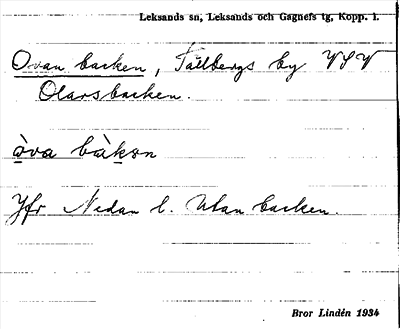 Leksands sn, Leksands och Gagnefs tg, Kopp. l.
Ovan backen, Tällbergs by VSV
Olarsbacken.
òva bàkən
Jfr Nedan b. Utan backen.
Bror Lindén 1934